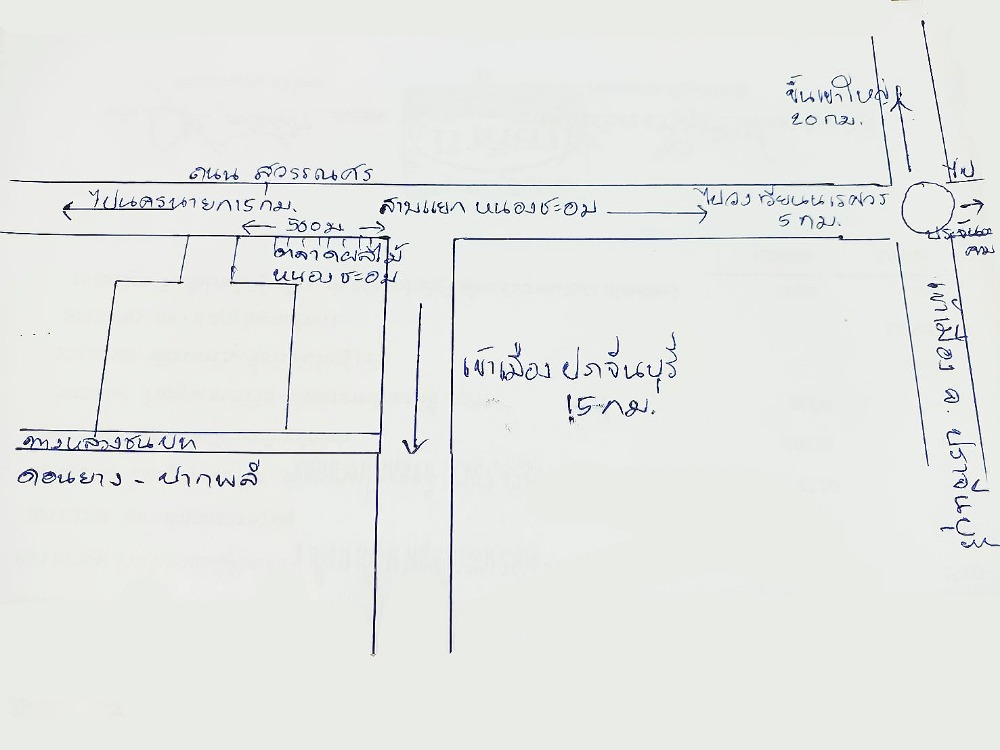 ขึ้นเขาใหญ่
20 กม.
ถนน สุวรรณศร
ไป
ไปนครนายก 15 กม.
สามแยก หนองชะอม
ไปวงเวียนนเรศวร
5 กม.
500 ม.
ประจันต
คาม
ตลาดผลไม้
หนองชะอม
เข้าเมือง ปราจีนบุรี
15 กม.
เข้าเมือง จ. ปราจีนบุรี
ทางหลวงชนบท
ดอนยาง - ปากพลี